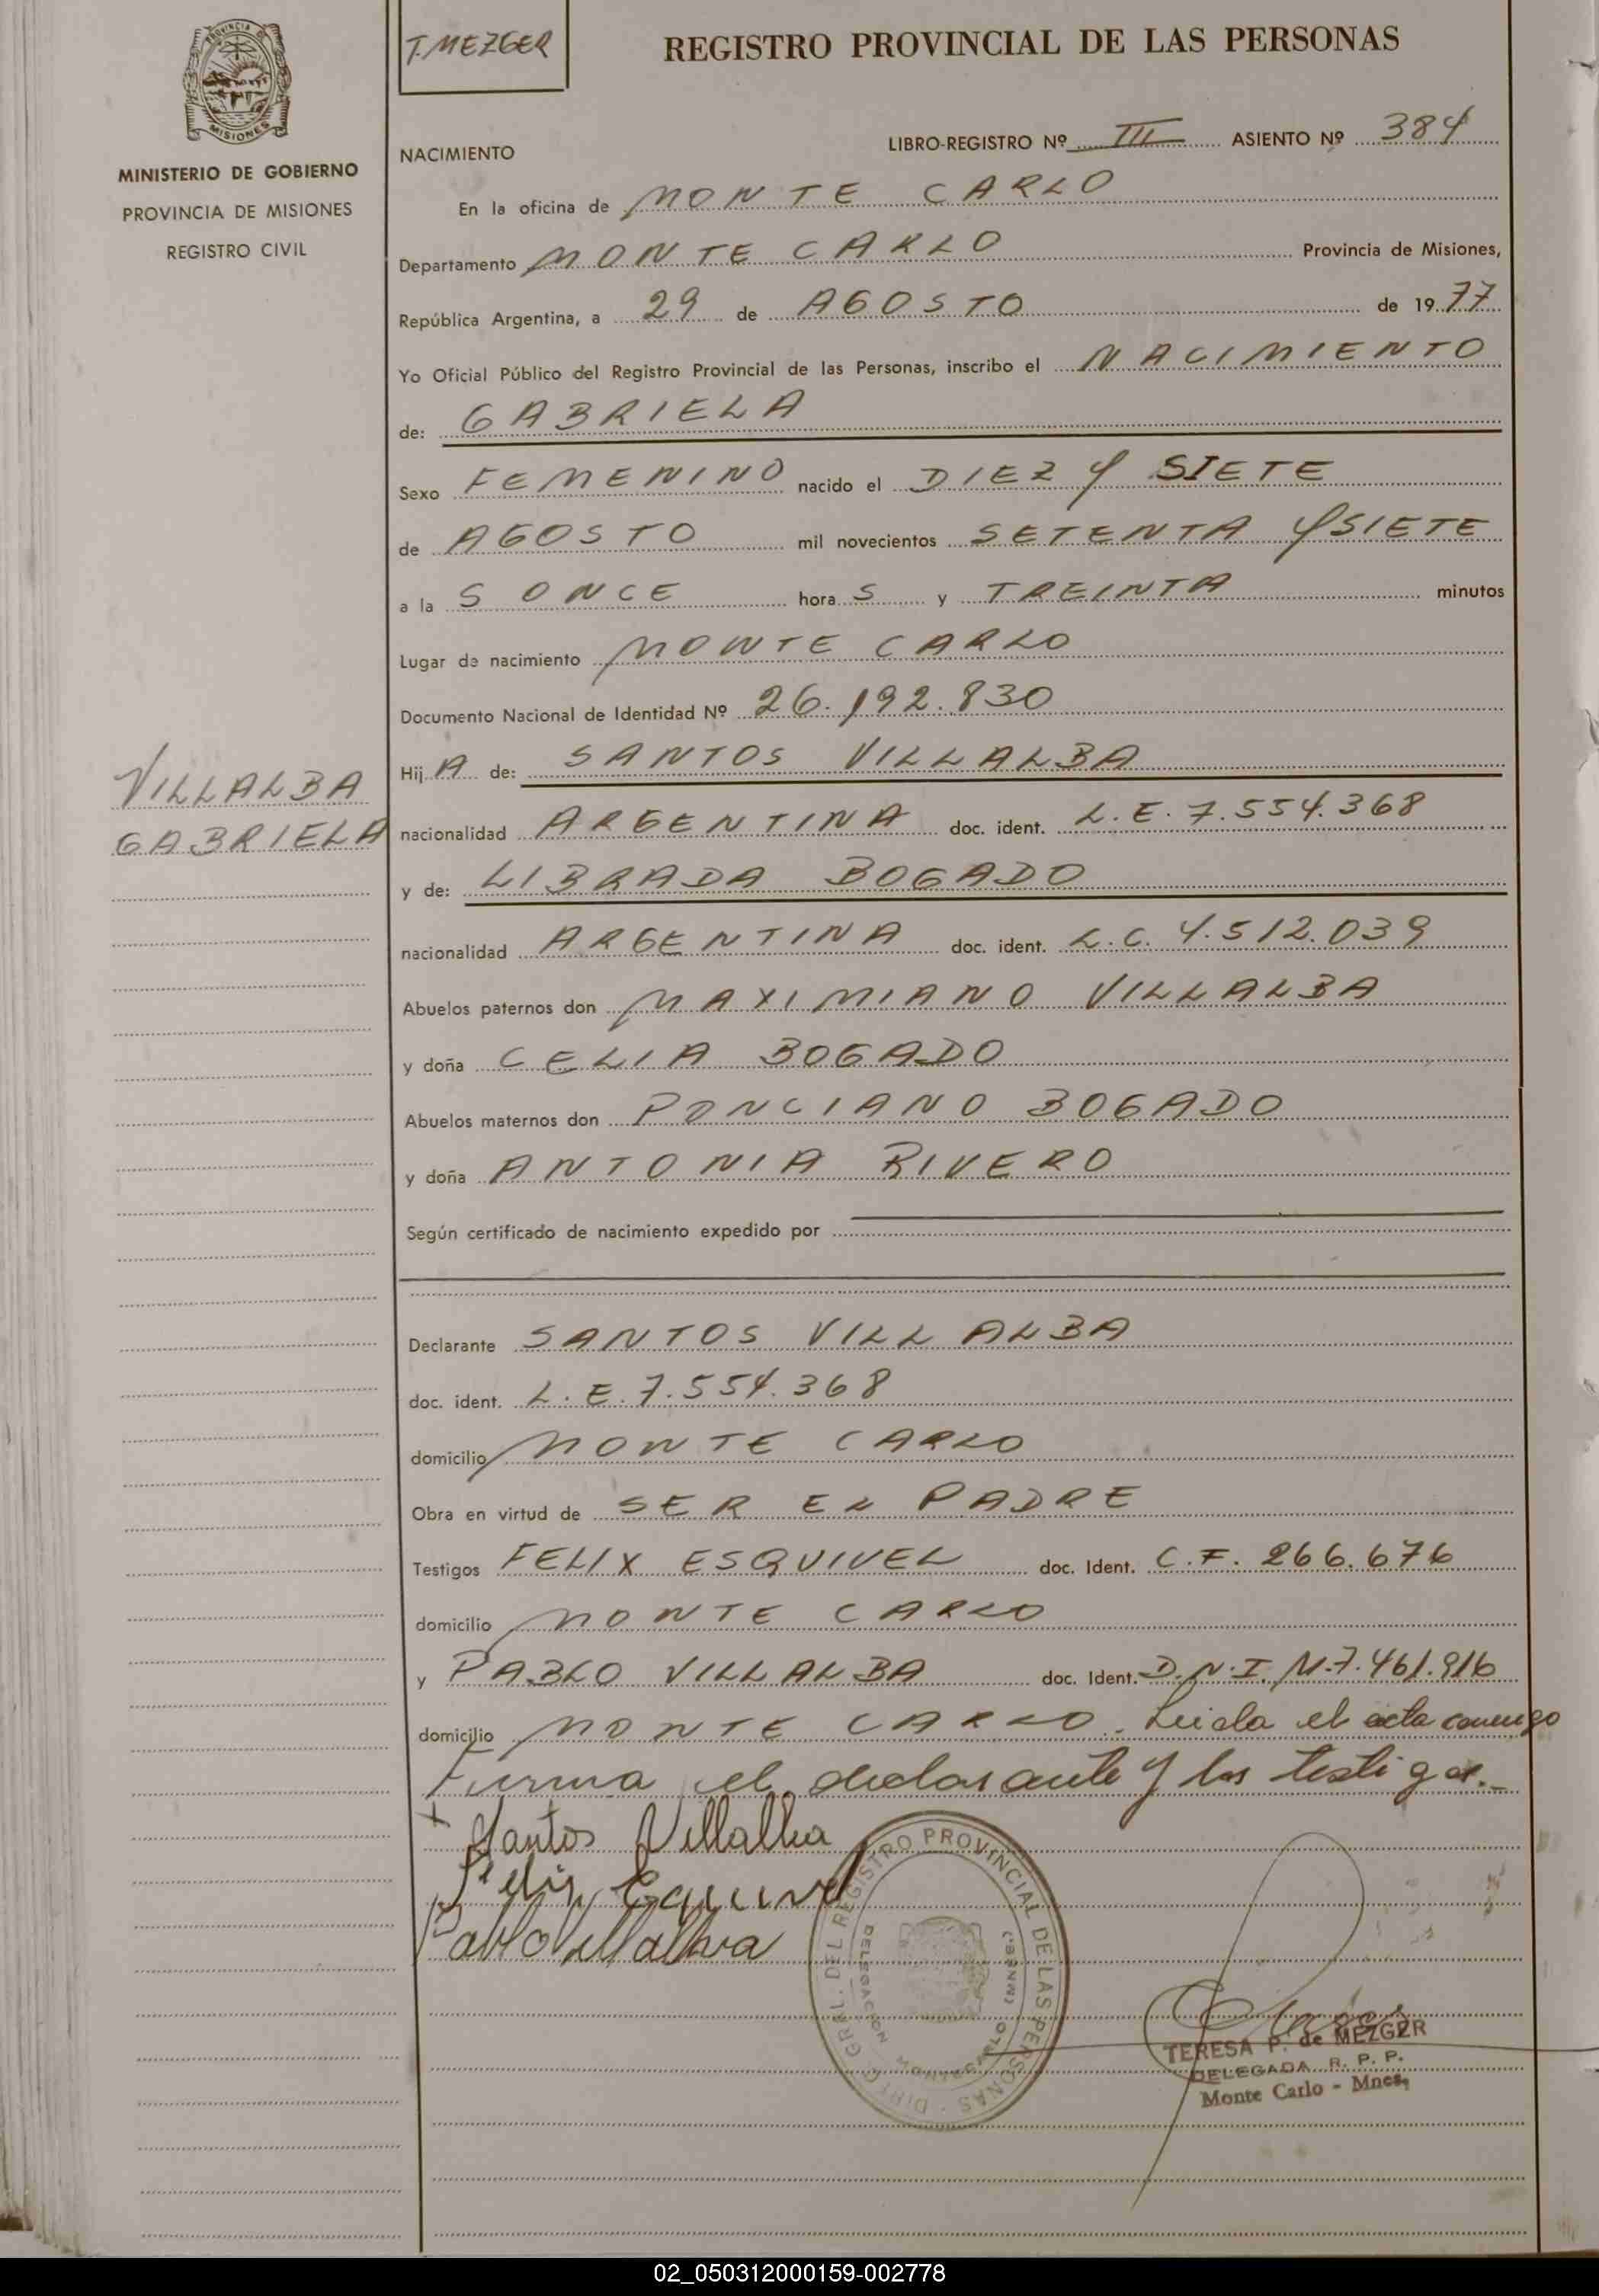 PROVINCIA DE
MISIONES
MINISTERIO DE GOBIERNO
PROVINCIA DE MISIONES
REGISTRO CIVIL
T. MEZGER
REGISTRO PROVINCIAL DE LAS PERSONAS
LIBRO-REGISTRO Nº III ASIENTO Nº 384
NACIMIENTO
En la oficina de MONTE CARLO
Departamento MONTE CARLO Provincia de Misiones,
República Argentina, a 29 de AGOSTO de 1977
Yo Oficial Público del Registro Provincial de las Personas, inscribo el NACIMIENTO
de: GABRIELA
Sexo FEMENINO nacido el DIEZ Y SIETE
de AGOSTO mil novecientos SETENTA Y SIETE
a la S ONCE hora S y TREINTA minutos
Lugar de nacimiento MONTE CARLO
Documento Nacional de Identidad Nº 26.192.830
Hij A de: SANTOS VILLALBA
VILLALBA
GABRIELA
nacionalidad ARGENTINA doc. ident. L.E. 7.554.368
y de: LIBRADA BOGADO
nacionalidad ARGENTINA doc. ident. L.C. 4.512.039
Abuelos paternos don MAXIMIANO VILLALBA
y doña CELIA BOGADO
Abuelos maternos don PONCIANO BOGADO
y doña ANTONIA RIVERO
Según certificado de nacimiento expedido por
Declarante SANTOS VILLALBA
doc. ident. L.E. 7.554.368
domicilio MONTE CARLO
Obra en virtud de SER EL PADRE
Testigos FELIX ESQUIVEL doc. Ident. C.F. 266.676
domicilio MONTE CARLO
y PABLO VILLALBA doc. Ident. D.N.I. M.7.461.916
domicilio MONTE CARLO. Leida el acta conmigo
Firma el declarante y los testigos.-
+ Santos Villalba
Felix Esquivel
Pablo Villalba
DIR. GRAL. DEL REGISTRO PROVINCIAL DE LAS PERSONAS
DELEGACION MONTECARLO (MNES.)
TERESA P. de MEZGER
DELEGADA R. P. P.
Monte Carlo - Mnes.
02_050312000159-002778